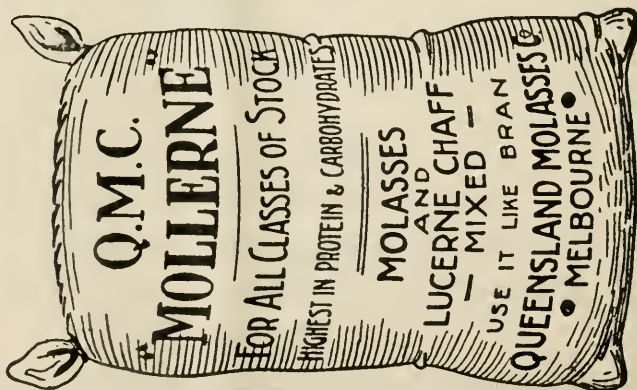 Q.M.C.
"MOLLERNE"
FOR ALL CLASSES OF STOCK
HIGHEST IN PROTEIN & CARBOHYDRATES
MOLASSES
AND
LUCERNE CHAFF
— MIXED —
USE IT LIKE BRAN
QUEENSLAND MOLASSES Co.
• MELBOURNE •